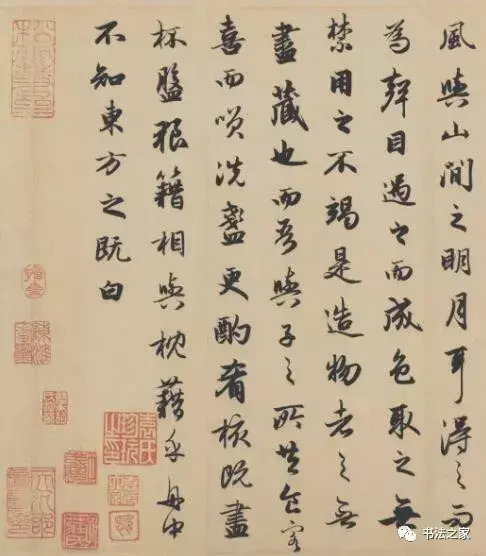 風與山間之明月耳得之而
為聲目遇之而成色取之無
禁用之不竭是造物者之無
盡藏也而吾與子之所共食客
喜而笑洗盞更酌肴核既盡
杯盤狼籍相與枕藉乎舟中
不知東方之既白
书法之家